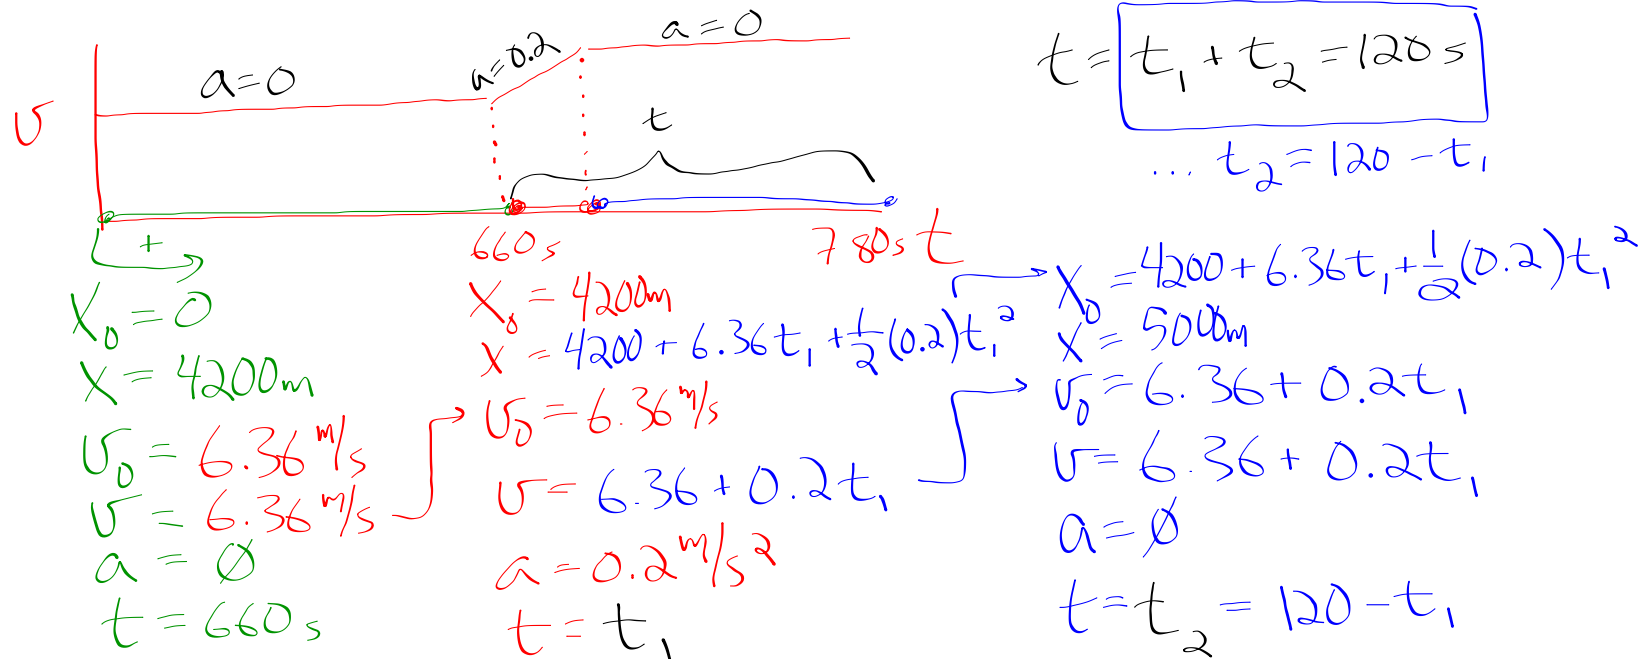 a=0
a=0.2
a=0
v
t
660s
780s t
t = t₁ + t₂ = 120s
... t₂ = 120 - t₁
+
x₀ = 0
x = 4200m
v₀ = 6.36 m/s
v = 6.36 m/s
a = Ø
t = 660s
x₀ = 4200m
x = 4200 + 6.36t₁ + 1/2(0.2)t₁²
v₀ = 6.36 m/s
v = 6.36 + 0.2t₁
a = 0.2 m/s²
t = t₁
x₀ = 4200 + 6.36t₁ + 1/2(0.2)t₁²
x = 5000m
v₀ = 6.36 + 0.2t₁
v = 6.36 + 0.2t₁
a = Ø
t = t₂ = 120 - t₁